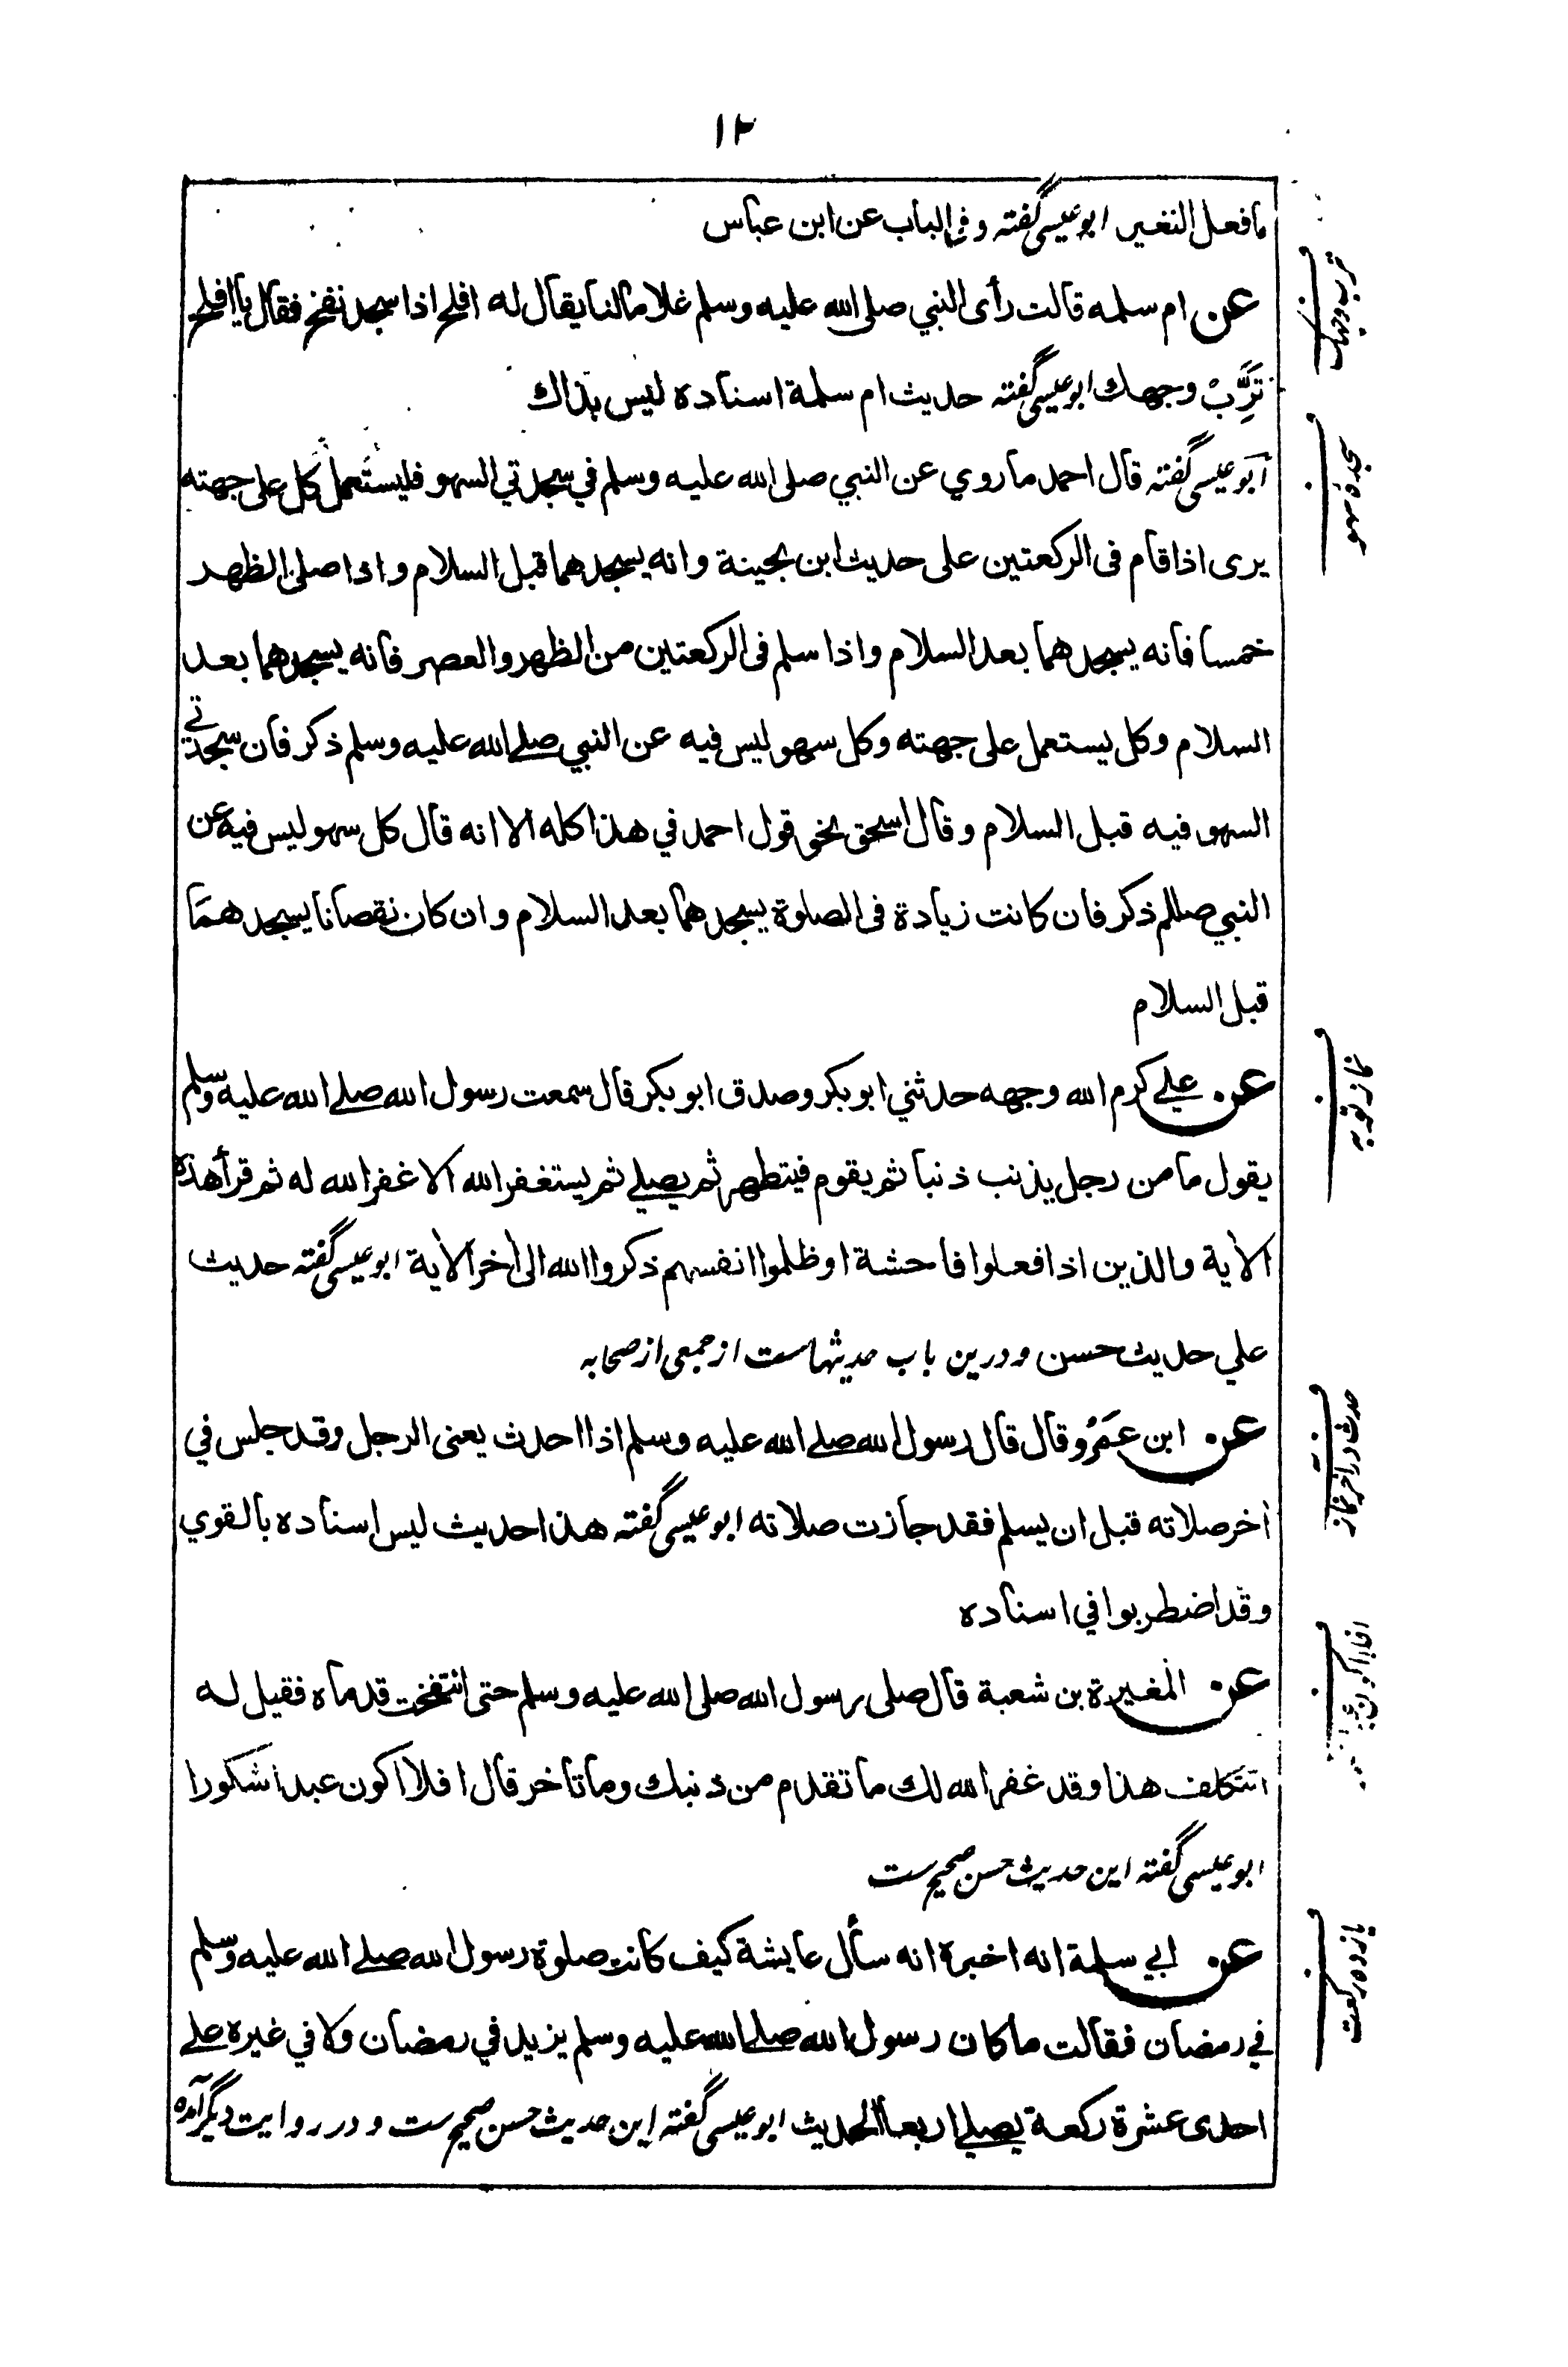 ۱۲
ما فعل النغير ابوعیسی گفته وفي الباب عن ابن عباس
عن ام سلمه قالت رأى النبي صلى الله عليه وسلم غلاما لنا يقال له افلح اذا سجد نفخ فقال يا افلح
ترب وجهك
تَرِّبْ وجهك ابوعیسی گفته حديث ام سلمة اسناده ليس بذاك
ابوعیسی گفته قال احمد ما روي عن النبي صلى الله عليه وسلم في سجدتي السهو فليستعمل كل على جهته
سجدهٔ سهو
يرى اذا قام فى الركعتين على حديث ابن بحينة وانه يسجدهما قبل السلام واذا صلى الظهر
خمسا فانه يسجدهما بعد السلام واذا سلم فى الركعتين من الظهر والعصر فانه يسجدهما بعد
السلام وكل يستعمل على جهته وكل سهو ليس فيه عن النبي صلے الله عليه وسلم ذكر فان سجدتي
السهو فيه قبل السلام وقال اسحق نحو قول احمد في هذا كله الا انه قال كل سهو ليس فيه عن
النبي صللم ذكر فان كانت زيادة فى الصلوة يسجدهما بعد السلام وان كان نقصانا يسجدهما
قبل السلام
عن علے كرم الله وجهه حدثني ابو بكر وصدق ابو بكر قال سمعت رسول الله صلے الله عليه وسلم
نماز توبه
يقول ما من رجل يذنب ذنبا ثم يقوم فيتطهر ثم يصلے ثم يستغفر الله الا غفر الله له ثم قرأ هذه
الآية والذين اذا فعلوا فاحشة او ظلموا انفسهم ذكروا الله الى آخر الآية ابوعیسی گفته حديث
علي حديث حسن ودرین باب حدیثهاست از جمعی از صحابه
عن ابن عَمرُو قال قال رسول الله صلے الله عليه وسلم اذا احدث يعنى الرجل وقد جلس في
حدث در آخر نماز
آخر صلاته قبل ان يسلم فقد جازت صلاته ابوعیسی گفته هذا حديث ليس اسناده بالقوي
وقد اضطربوا في اسناده
عن المغيرة بن شعبة قال صلى رسول الله صلى الله عليه وسلم حتى انتفخت قدماه فقيل له
افلا اکون
اتتكلف هذا وقد غفر الله لك ما تقدم من ذنبك وما تاخر قال افلا اكون عبدا شكورا
ابوعیسی گفته این حدیث حسن صحیح ست
عن ابي سلمة انه اخبره انه سأل عايشة كيف كانت صلوة رسول الله صلے الله عليه وسلم
یازده رکعت
في رمضان فقالت ما كان رسول الله صلے الله عليه وسلم يزيد في رمضان ولا في غيره على
احدى عشرة ركعة يصلے اربعا الحديث ابوعیسی گفته این حدیث حسن صحیح ست ودر روایت دیگر آمده